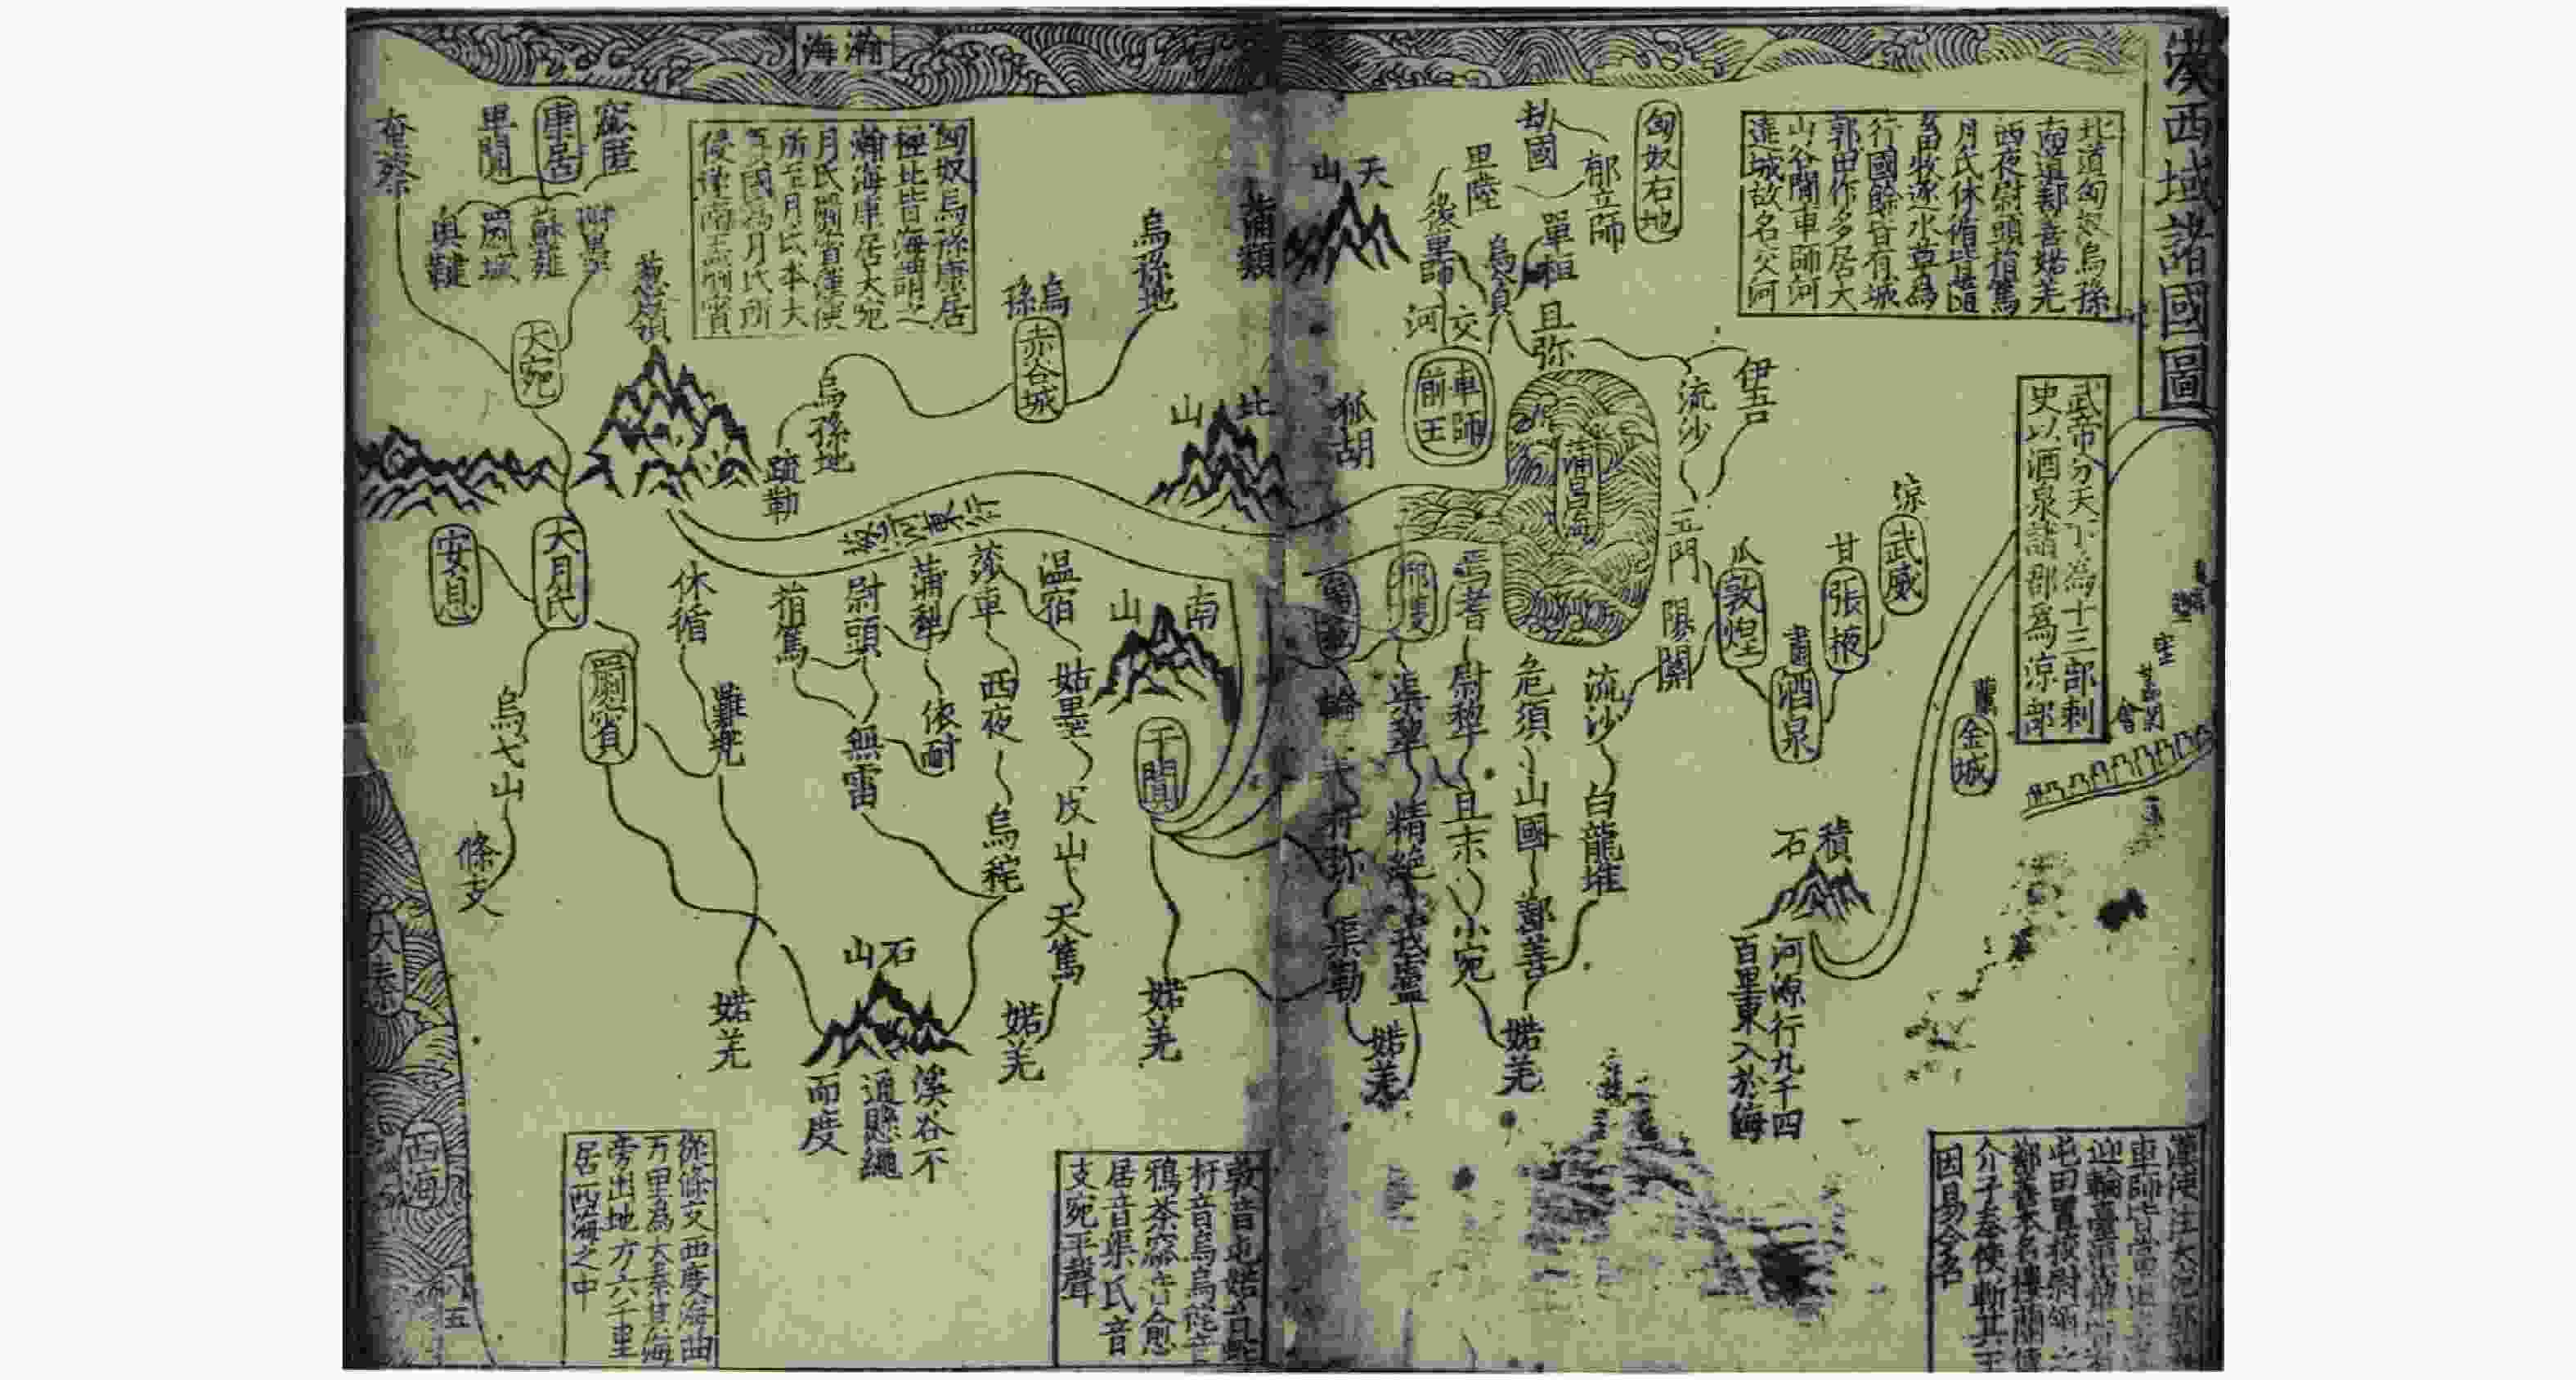 漢西域諸國圖
瀚海
北道匈奴烏孫
南道鄯善婼羌
西夜尉頭捐篤
月氏休循皆是隨
畜牧逐水草為
行國餘皆有城
郭田作多居大
山谷間車師河
遶城故名交河
武帝分天下為十三部刺
史以酒泉諸郡為涼部
匈奴右地
劫國
郁立師
卑陸
後卑師
單桓
烏貪
天山
蒲類
且弥
交河
車師前王
狐胡
蒲昌海
伊吾
流沙
玉門
陽關
瓜
敦煌
肅
酒泉
甘
張掖
涼
武威
蘭
金城
積石
河源行九千四
百里東入於海
流沙
白龍堆
危須
山國
鄯善
焉耆
尉犁
且末
小宛
婼羌
渠犁
精絕
戎盧
渠勒
婼羌
匈奴烏孫康居
極北皆海謂之
瀚海康居大宛
月氏罽賓漢使
所至月氏本大
烏孫地
烏孫
赤谷城
烏孫地
疏勒
北山
南山
于闐
婼羌
溫宿
姑墨
皮山
天篤
婼羌
莎車
西夜
烏秅
蒲犁
依耐
尉頭
無雷
捐篤
休循
難兜
婼羌
石山
溪谷不
通懸繩
而度
葱嶺
窳匿
康居
卑闐
奄蔡
蘇薤
罽城
奧鞬
大宛
大月氏
安息
罽賓
烏弋山
條支
大秦
西海
從條支西度海曲
万里為大秦其海
旁出地方六千里
居西海之中
鴉茶窳音愈
居音渠氏音
支宛平聲
介子奉使斬其王
因易今名
五